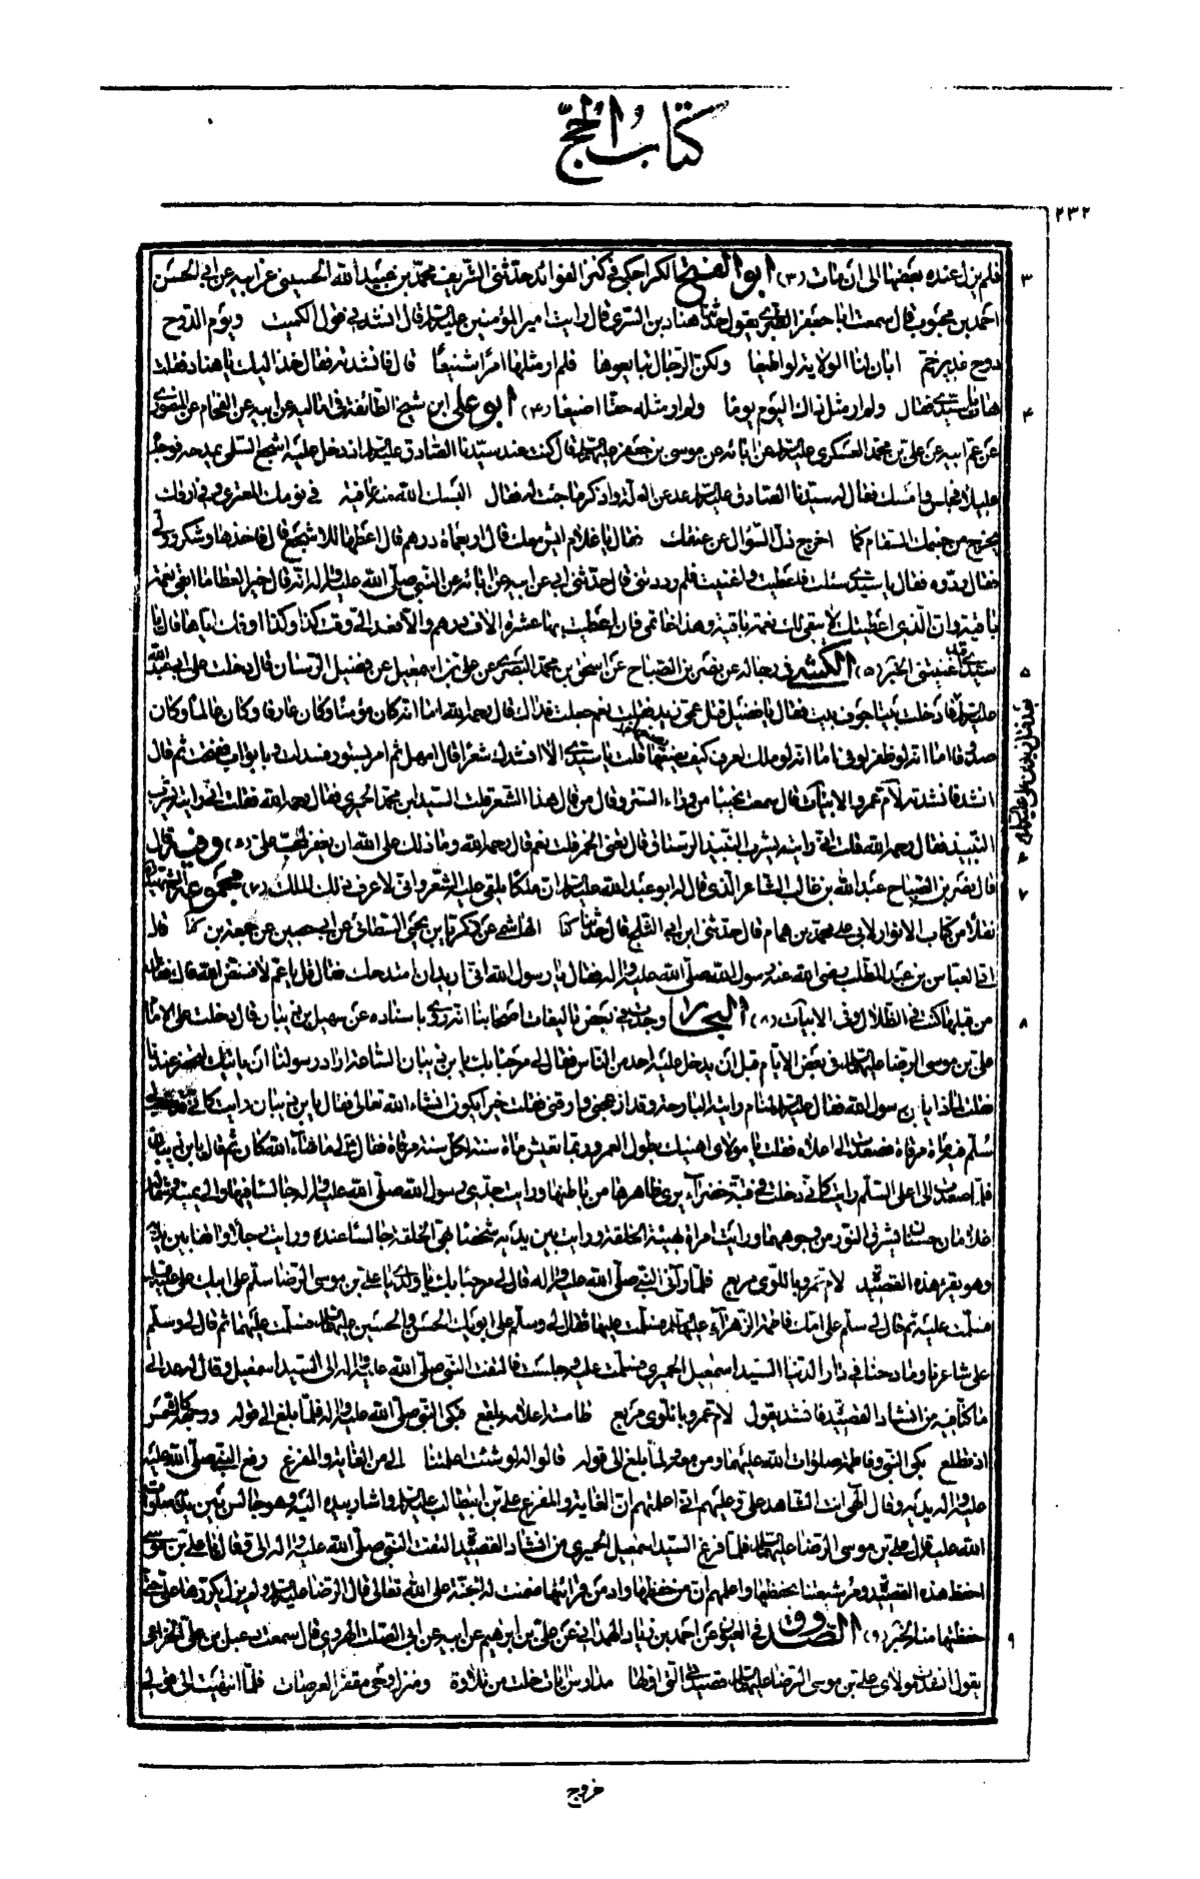 كتاب الحج
٢٣٢
فلم يزل عنده بعضها الى ان مات (٣) ابو الفتح الكراجكي في كنز الفوائد حدثني الشريف محمد بن عبيد الله الحسيني عن ابيه عن ابي الحسن
احمد بن محبوب قال سمعت ابا جعفر الطبري يقول حدثنا هناد بن السري قال رايت امير المؤمنين عليه السلام قال انشدني قول الكميت ويوم الدوح
دوح غدير خم ابان لنا الولاية لو اطيعا ولكن الرجال تبايعوها فلم ار مثلها امرا شنيعا قال فانشدته فقال خذ اليك يا هناد فقلت
هات يا سيدي فقال ولم ار مثل ذاك اليوم يوما ولم ار مثله حقا اضيعا (٤) ابو علي ابن شيخ الطائفة في اماليه عن ابيه عن الفحام عن المنصوري
عن عم ابيه عن علي بن محمد العسكري عليه السلام عن ابائه عن موسى بن جعفر عليه السلام قال كنت عند سيدنا الصادق عليه السلام اذ دخل عليه اشجع السلمي يمدحه فوجده
عليلا فجلس وامسك فقال له سيدنا الصادق عليه السلام عد عن العلة واذكر ما جئت له فقال البسك الله منه عافية في نومك المعتري وفي ارقك
يخرج من جسمك السقام كما اخرج ذل السؤال من عنقك فقال يا غلام ايش معك قال اربعمأة درهم قال اعطها للاشجع قال فاخذها وشكر وولى
فقال ردوه فقال يا سيدي سئلت فاعطيت واغنيت فلم رددتني قال حدثني ابي عن ابيه عن ابائه عن النبي صلى الله عليه واله انه قال خير العطاء ما ابقى نعمة
باقية وان الذي اعطيتك لا يبقى لك نعمة باقية وهذا خاتمي فان اعطيت به عشرة الاف درهم والا فعد الي وقت كذا وكذا اوفك اياها قال يا
سيدي قد اغنيتني الخبر (٥) الكشي في رجاله عن نصر بن الصباح عن اسحق بن محمد البصري عن علي بن اسمعيل عن فضيل الرسان قال دخلت على ابي عبد الله
عليه السلام فادخلت بيتا جوف بيت فقال يا فضيل قتل عمي زيد فقلت نعم جعلت فداك قال رحمه الله اما انه كان مؤمنا وكان عارفا وكان عالما وكان
صدوقا اما انه لو ظفر لوفى اما انه لو ملك لعرف كيف يضعها قلت يا سيدي الا انشدك شعرا قال امهل ثم امر بستور فسدلت وبابواب ففتحت ثم قال
انشد فانشدته لام عمرو الابيات قال سمعت نحيبا من وراء الستر وقال من قال هذا الشعر قلت السيد ابن محمد الحميري فقال رحمه الله فقلت اني رايته يشرب
النبيذ فقال رحمه الله قلت اني رايته يشرب النبيذ الرستاق قال تعني الخمر قلت نعم قال رحمه الله وما ذلك على الله ان يغفر لمحب علي (٥) وفيه قال
قال نصر بن الصباح عبد الله بن غالب الشاعر الذي قال له ابو عبد الله عليه السلام ان ملكا يلقي عليه الشعر واني لاعرف ذلك الملك (٧) مجموعة الشهيد
نقلا من كتاب الانوار لابي علي محمد بن همام قال حدثني ابن ابي الثلج قال حدثنا الهاشمي عن زكريا بن يحيى
اتى العباس بن عبد المطلب رضي الله عنه رسول الله صلى الله عليه واله فقال يا رسول الله اني اريد ان امتدحك فقال قل يا عم لا فضض الله فاك فقال
من قبلها كنت في الظلال وفي الابيات (٨) البحار وجدت في بعض تاليفات اصحابنا انه روى باسناده عن سهيل بن ذبيان قال دخلت على الامام
علي بن موسى الرضا عليه السلام في بعض الايام قبل ان يدخل عليه احد من الناس فقال لي مرحبا بك يا بن ذبيان الساعة اراد رسولنا ان ياتيك لتحضر عندنا
فقلت لماذا يا بن رسول الله فقال لمنام رايته البارحة وقد ازعجني وارقني فقلت خيرا يكون انشاء الله تعالى فقال يا بن ذبيان رايت كاني قد نصب لي
سلم فيه مأة مرقاة فصعدت الى اعلاه فقلت يا مولاي اهنيك بطول العمر وربما تعيش مأة سنة لكل سنة مرقاة فقال لي ما شاء الله كان ثم قال يا بن ذبيان
فلما صعدت الى اعلى السلم رايت كاني دخلت في قبة خضراء يرى ظاهرها من باطنها ورايت جدي رسول الله صلى الله عليه واله جالسا فيها والى يمينه وشماله
غلامان حسنان يشرق النور من وجوههما ورايت امراة بهية الخلقة ورايت بين يديه شخصا بهي الخلقة جالسا عنده ورايت رجلا واقفا بين يديه
وهو يقرء هذه القصيدة لام عمرو باللوى مربع فلما رآني النبي صلى الله عليه واله قال لي مرحبا بك يا ولدي يا علي بن موسى الرضا سلم على ابيك علي
فسلمت عليه ثم قال لي سلم على امك فاطمة الزهراء عليها السلام فسلمت عليها فقال لي وسلم على ابويك الحسن والحسين عليهما السلام فسلمت عليهما ثم قال لي وسلم
على شاعرنا ومادحنا في دار الدنيا السيد اسمعيل الحميري فسلمت عليه وجلست فالتفت النبي صلى الله عليه واله الى السيد اسمعيل وقال له عد الى
ما كنا فيه من انشاد القصيدة فانشد يقول لام عمرو باللوى مربع طامسة اعلامه بلقع فبكى النبي صلى الله عليه واله فلما بلغ الى قوله ووجهه كالشمس
اذ تطلع بكى النبي وفاطمة صلوات الله عليهما ومن معه ولما بلغ الى قوله قالوا له لو شئت اعلمتنا الى من الغاية والمفزع رفع النبي صلى الله عليه
عليه واله يديه وقال الهي انت الشاهد علي وعليهم اني اعلمتهم ان الغاية والمفزع علي بن ابيطالب عليه السلام واشار بيده اليه وهو جالس بين يديه صلوات
الله عليه قال علي بن موسى الرضا عليه السلام فلما فرغ السيد اسمعيل الحميري من انشاد القصيدة التفت النبي صلى الله عليه واله الي وقال يا علي بن موسى
احفظ هذه القصيدة ومر شيعتنا بحفظها واعلمهم ان من حفظها وادمن قرائتها ضمنت له الجنة على الله تعالى قال الرضا عليه السلام ولم يزل يكررها علي حتى
حفظتها منه الخبر (٩) الصدوق في العيون عن احمد بن زياد الهمداني عن علي بن ابراهيم عن ابيه عن ابي الصلت الهروي قال سمعت دعبل بن علي الخزاعي
يقول انشدت مولاي علي بن موسى الرضا عليه السلام قصيدتي التي اولها مدارس ايات خلت من تلاوة ومنزل وحي مقفر العرصات فلما انتهيت الى قولي
خروج
٣
٤
٥
٦
٧
٨
٩